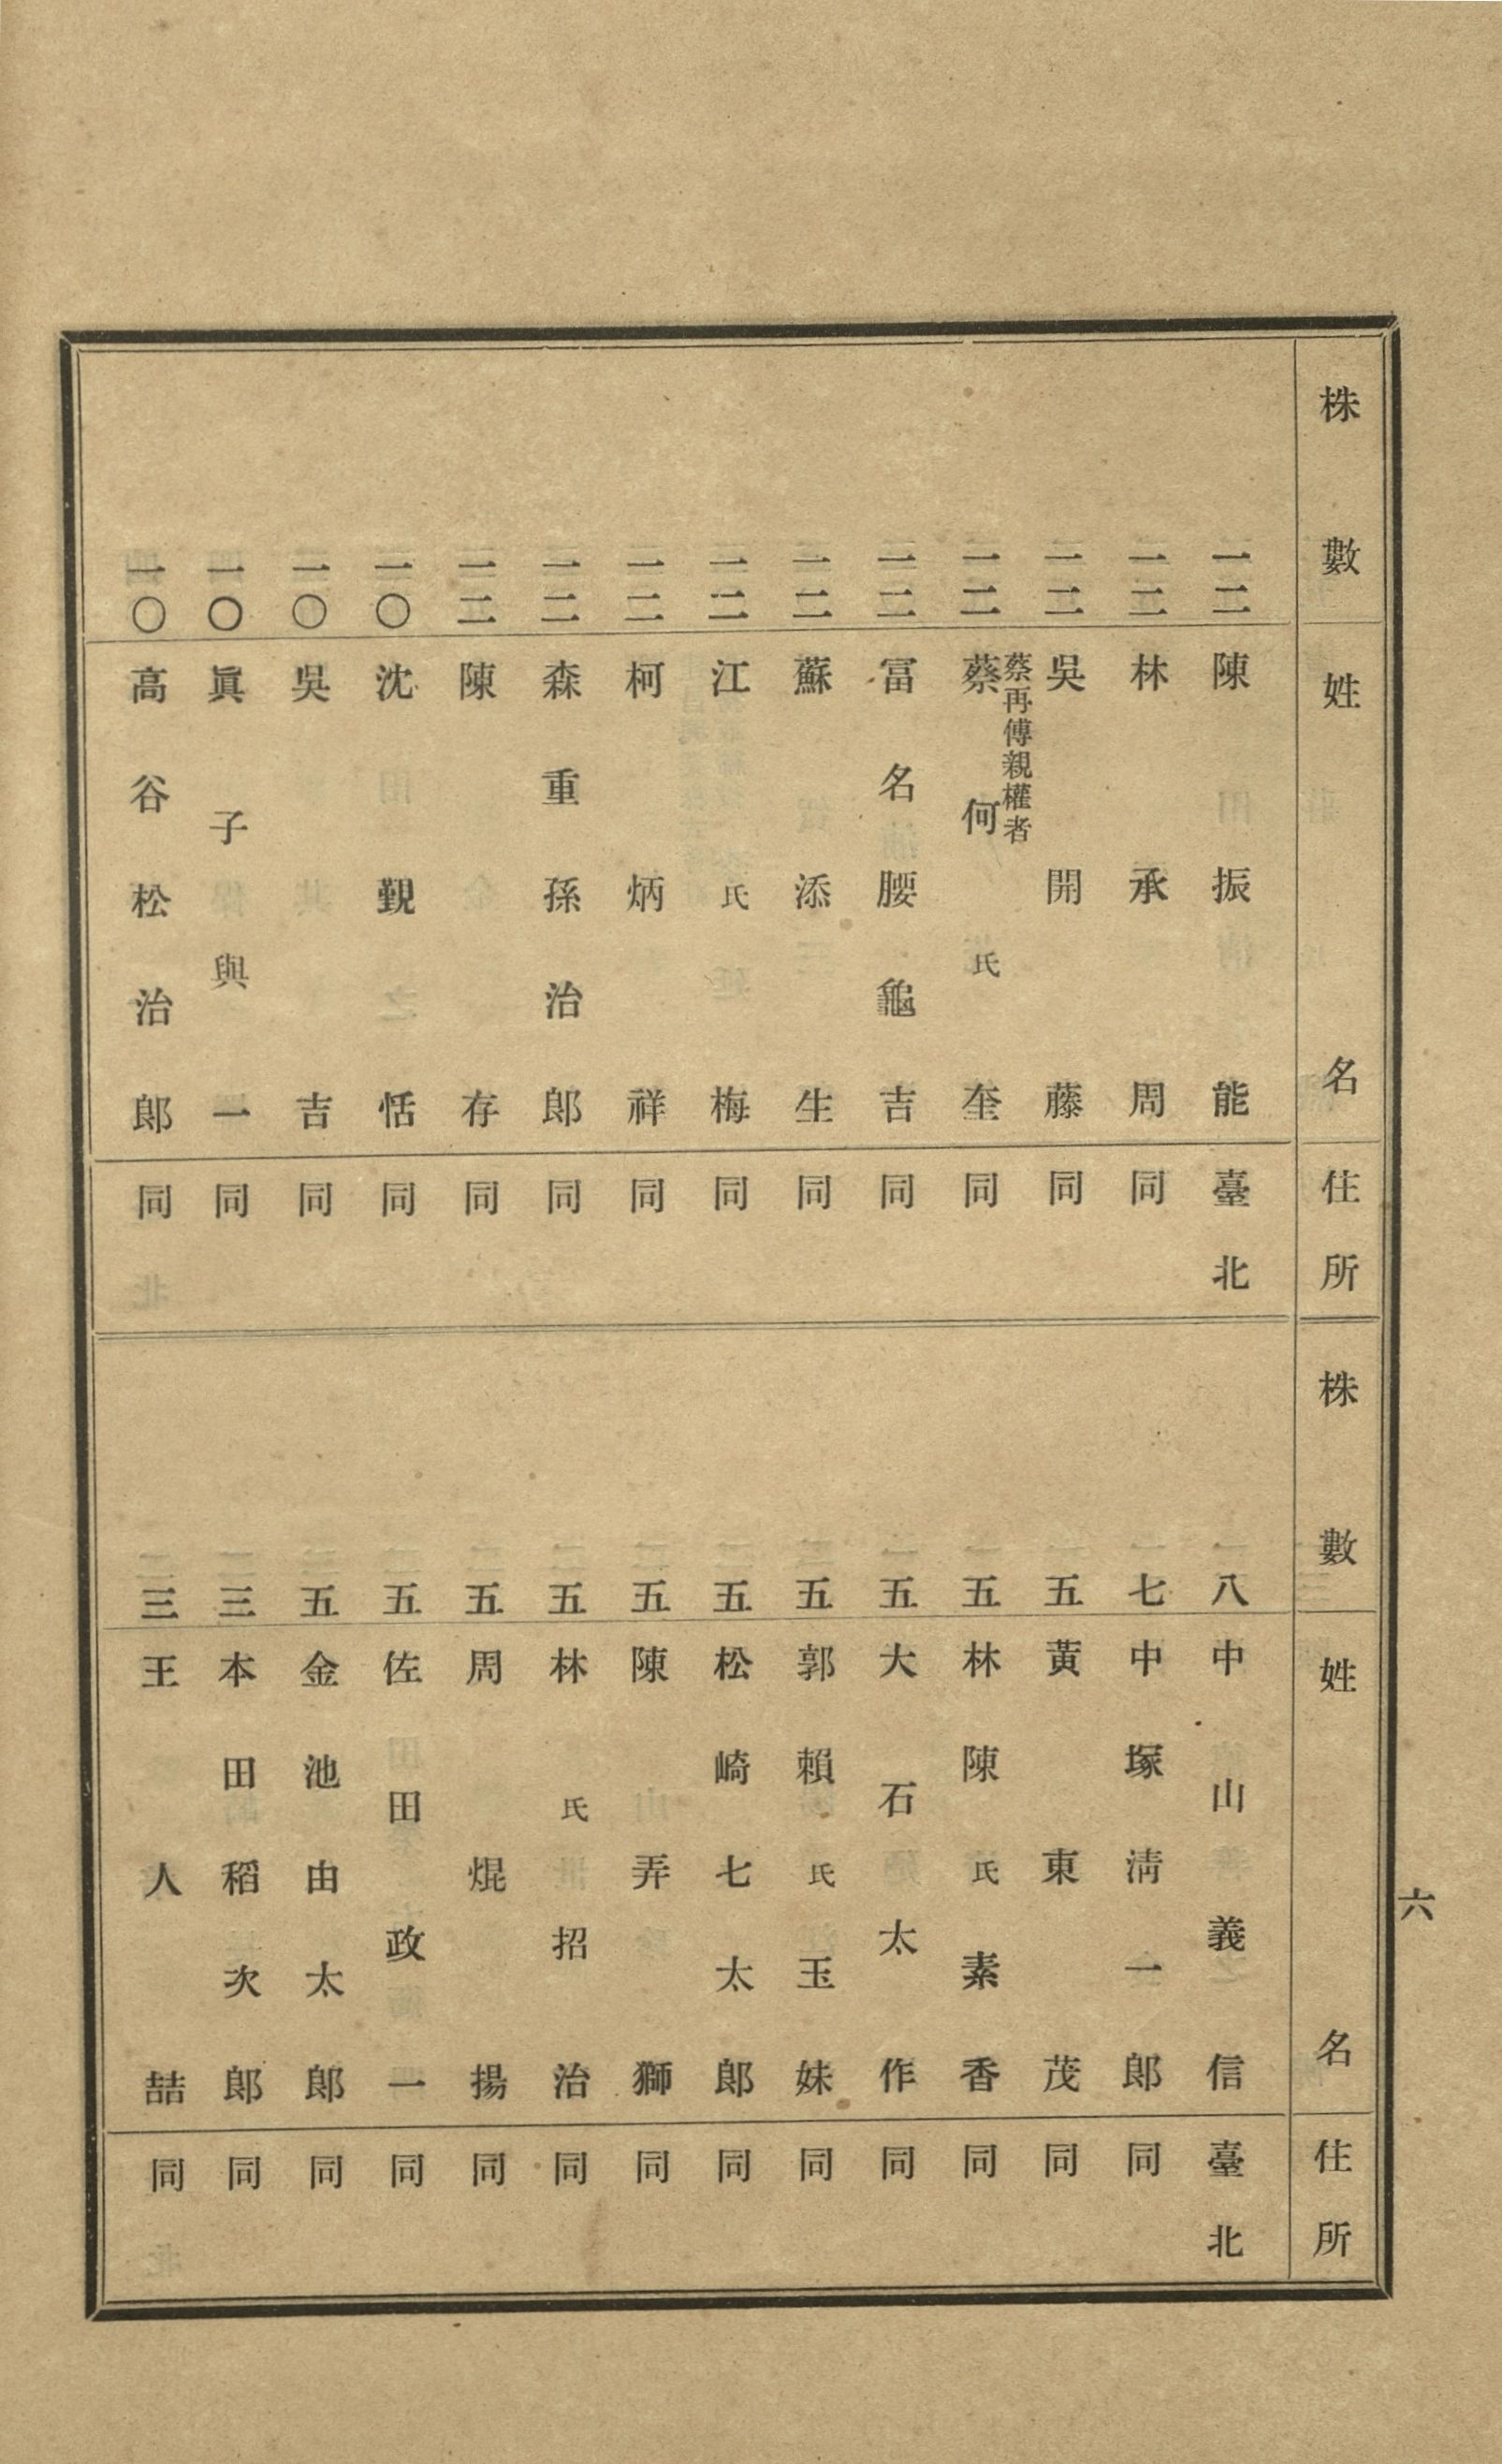 六
株數 姓名 住所
一二 陳振能 臺北
一二 林承周 同
一二 吳開藤 同
蔡再傳親權者
一二 蔡何氏奎 同
一二 冨名腰龜吉 同
一二 蘇添生 同
一二 江氏梅 同
一二 柯炳祥 同
一二 森重孫治郎 同
一二 陳存 同
一〇 沈覲恬 同
一〇 吳吉 同
一〇 眞子與一 同
一〇 高谷松治郎 同
株數 姓名 住所
八 中山義信 臺北
七 中塚淸一郎 同
五 黃東茂 同
五 林陳氏素香 同
五 大石太作 同
五 郭賴氏玉妹 同
五 松崎七太郎 同
五 陳弄獅 同
五 林氏招治 同
五 周焜揚 同
五 佐田政一 同
五 金池由太郎 同
三 本田稻次郎 同
三 王人喆 同